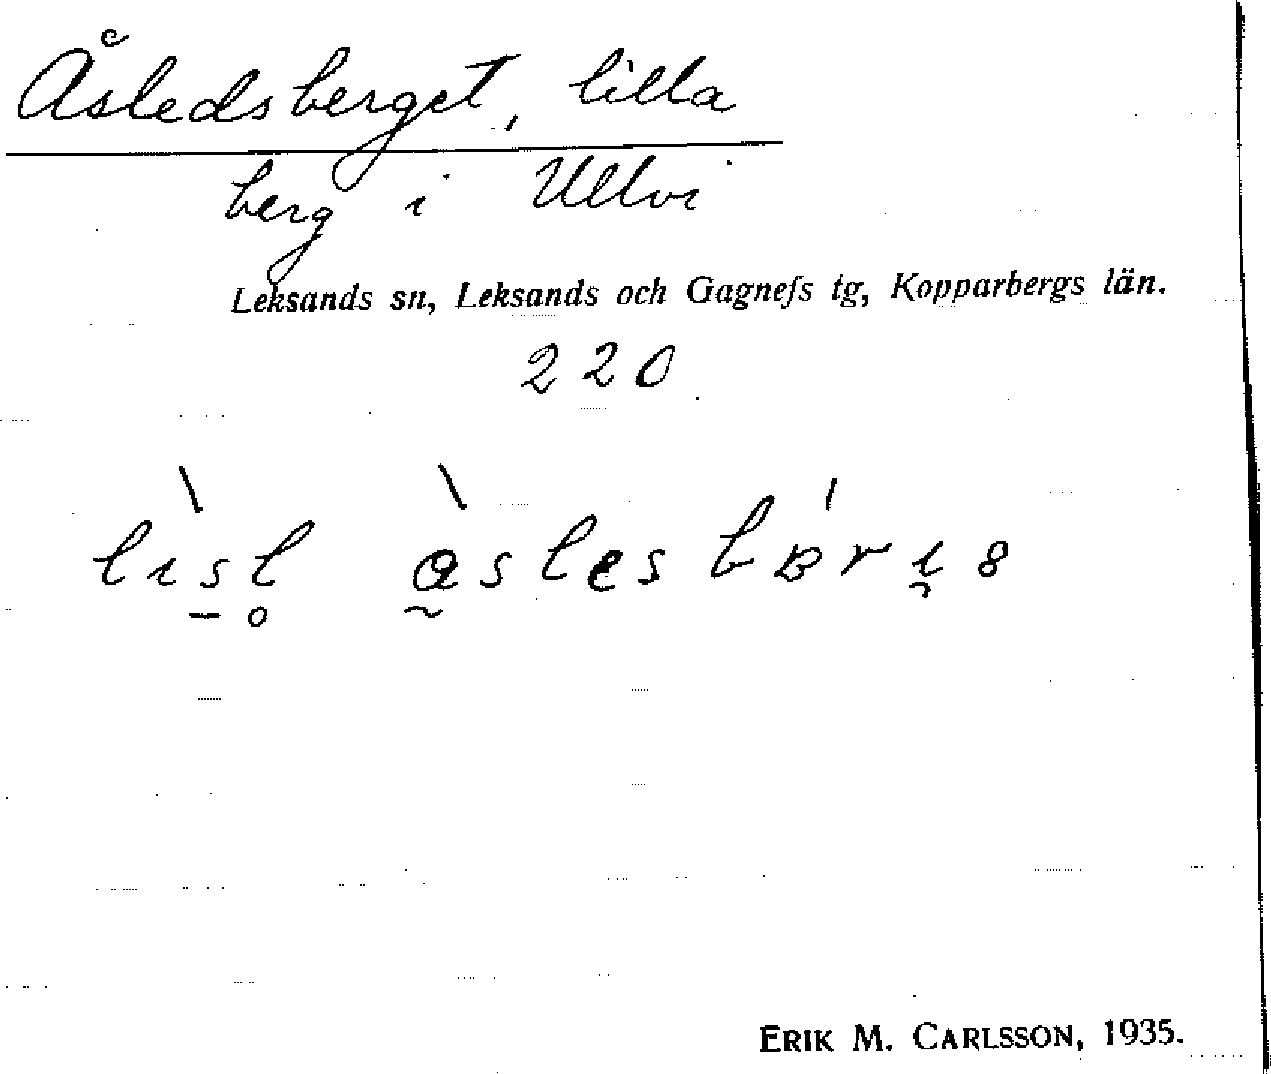 Åsledsberget, lilla
berg i Ullvi
Leksands sn, Leksands och Gagnefs tg, Kopparbergs län.
220
ERIK M. CARLSSON, 1935.